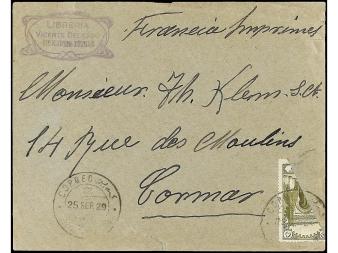 LIBRERIA
VICENTE DELGADO
Francia Imprimes
Monsieur. Th. Klem. S.A.
14 Rue des Moulins
Cormar
CORREO
25 SEP. 29